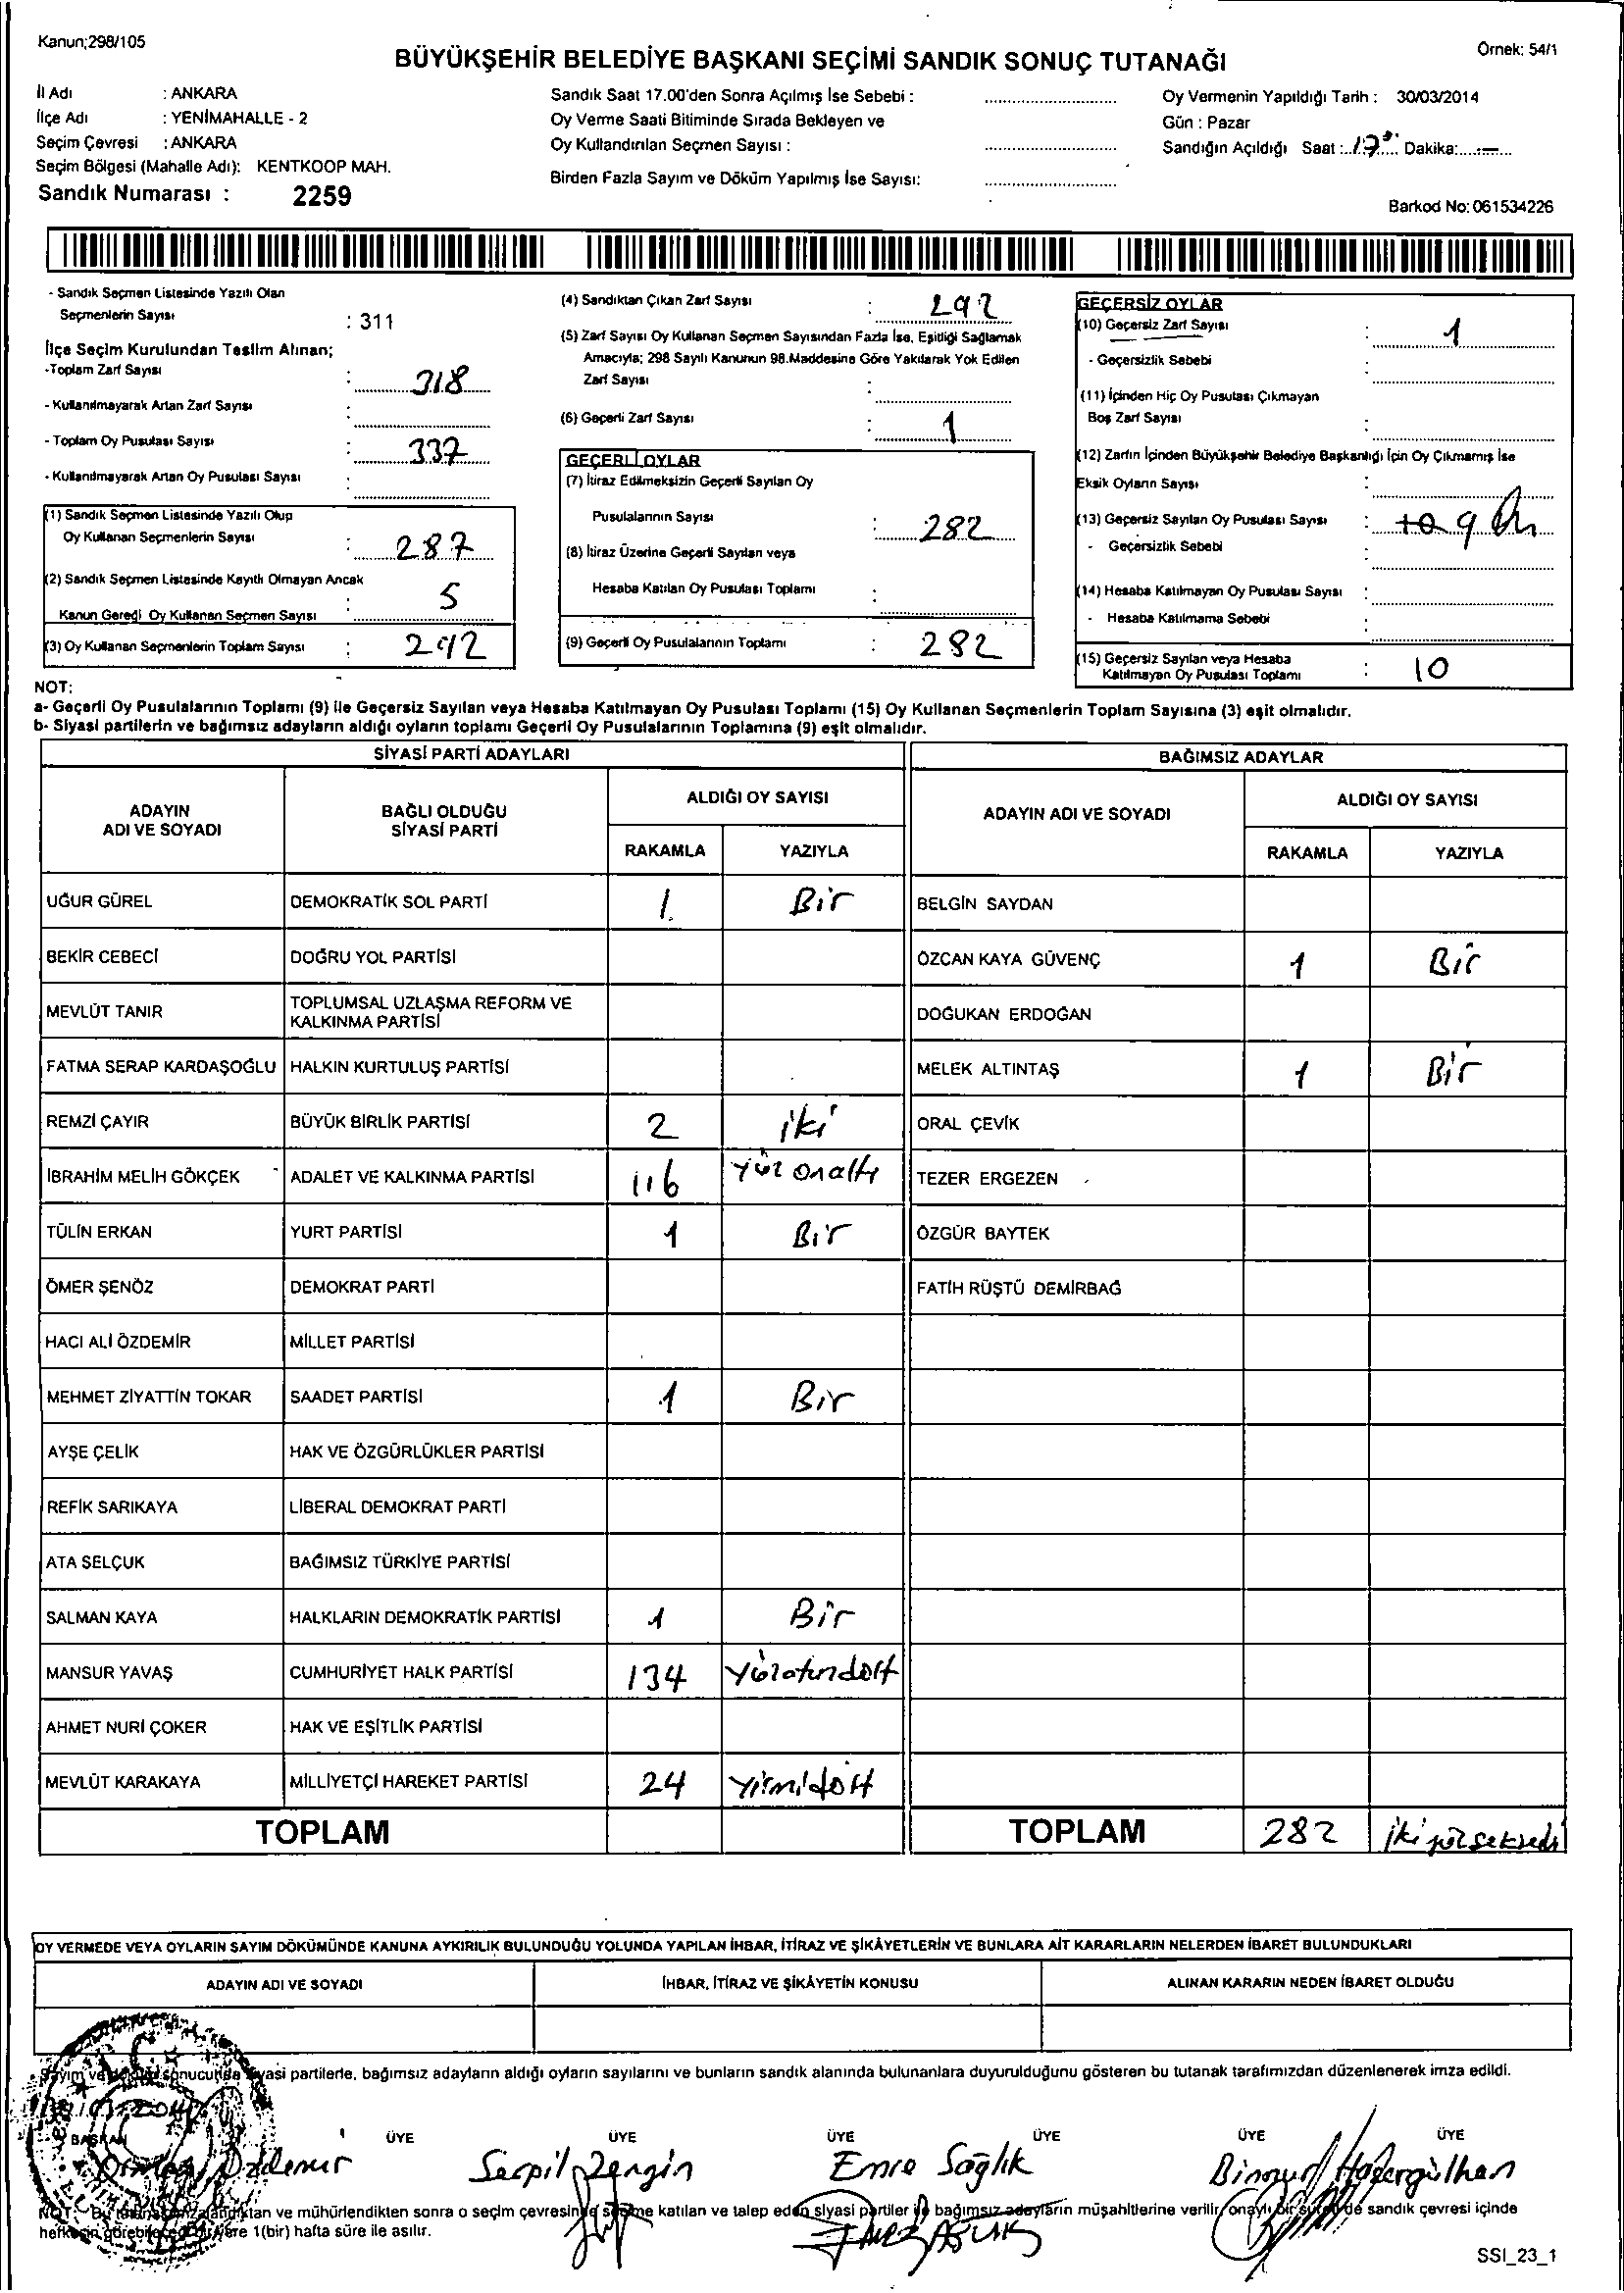 Kanun;298/105
Örnek: 54/1
BÜYÜKŞEHİR BELEDİYE BAŞKANI SEÇİMİ SANDIK SONUÇ TUTANAĞI
İl Adı : ANKARA
İlçe Adı : YENİMAHALLE - 2
Seçim Çevresi : ANKARA
Seçim Bölgesi (Mahalle Adı): KENTKOOP MAH.
Sandık Numarası : 2259
Sandık Saat 17.00'den Sonra Açılmış İse Sebebi :
Oy Verme Saati Bitiminde Sırada Bekleyen ve
Oy Kullandırılan Seçmen Sayısı :
Birden Fazla Sayım ve Döküm Yapılmış İse Sayısı:
Oy Vermenin Yapıldığı Tarih : 30/03/2014
Gün : Pazar
Sandığın Açıldığı Saat : 17 Dakika: —
Barkod No: 061534226
- Sandık Seçmen Listesinde Yazılı Olan
Seçmenlerin Sayısı : 311
İlçe Seçim Kurulundan Teslim Alınan;
-Toplam Zarf Sayısı : 318
- Kullanılmayarak Artan Zarf Sayısı :
- Toplam Oy Pusulası Sayısı : 337
- Kullanılmayarak Artan Oy Pusulası Sayısı :
(1) Sandık Seçmen Listesinde Yazılı Olup
Oy Kullanan Seçmenlerin Sayısı : 287
(2) Sandık Seçmen Listesinde Kayıtlı Olmayan Ancak
Kanun Gereği Oy Kullanan Seçmen Sayısı : 5
(3) Oy Kullanan Seçmenlerin Toplam Sayısı : 292
(4) Sandıktan Çıkan Zarf Sayısı : 292
(5) Zarf Sayısı Oy Kullanan Seçmen Sayısından Fazla İse, Eşitliği Sağlamak
Amacıyla; 298 Sayılı Kanunun 98.Maddesine Göre Yakılarak Yok Edilen
Zarf Sayısı :
(6) Geçerli Zarf Sayısı : 1
GEÇERLİ OYLAR
(7) İtiraz Edilmeksizin Geçerli Sayılan Oy
Pusulalarının Sayısı : 282
(8) İtiraz Üzerine Geçerli Sayılan veya
Hesaba Katılan Oy Pusulası Toplamı :
(9) Geçerli Oy Pusulalarının Toplamı : 282
GEÇERSİZ OYLAR
(10) Geçersiz Zarf Sayısı : 1
- Geçersizlik Sebebi :
(11) İçinden Hiç Oy Pusulası Çıkmayan
Boş Zarf Sayısı :
(12) Zarfın İçinden Büyükşehir Belediye Başkanlığı İçin Oy Çıkmamış İse
Eksik Oyların Sayısı :
(13) Geçersiz Sayılan Oy Pusulası Sayısı : 10 9
- Geçersizlik Sebebi :
(14) Hesaba Katılmayan Oy Pusulası Sayısı :
- Hesaba Katılmama Sebebi :
(15) Geçersiz Sayılan veya Hesaba
Katılmayan Oy Pusulası Toplamı : 10
NOT:
a- Geçerli Oy Pusulalarının Toplamı (9) ile Geçersiz Sayılan veya Hesaba Katılmayan Oy Pusulası Toplamı (15) Oy Kullanan Seçmenlerin Toplam Sayısına (3) eşit olmalıdır.
b- Siyasi partilerin ve bağımsız adayların aldığı oyların toplamı Geçerli Oy Pusulalarının Toplamına (9) eşit olmalıdır.
SİYASİ PARTİ ADAYLARI
ADAYIN
ADI VE SOYADI
BAĞLI OLDUĞU
SİYASİ PARTİ
ALDIĞI OY SAYISI
RAKAMLA YAZIYLA
UĞUR GÜREL DEMOKRATİK SOL PARTİ 1 Bir
BEKİR CEBECİ DOĞRU YOL PARTİSİ
MEVLÜT TANIR TOPLUMSAL UZLAŞMA REFORM VE
KALKINMA PARTİSİ
FATMA SERAP KARDAŞOĞLU HALKIN KURTULUŞ PARTİSİ
REMZİ ÇAYIR BÜYÜK BİRLİK PARTİSİ 2 iki
İBRAHİM MELİH GÖKÇEK ADALET VE KALKINMA PARTİSİ 116 Yüz onaltı
TÜLİN ERKAN YURT PARTİSİ 1 Bir
ÖMER ŞENÖZ DEMOKRAT PARTİ
HACI ALİ ÖZDEMİR MİLLET PARTİSİ
MEHMET ZİYATTİN TOKAR SAADET PARTİSİ 1 Bir
AYŞE ÇELİK HAK VE ÖZGÜRLÜKLER PARTİSİ
REFİK SARIKAYA LİBERAL DEMOKRAT PARTİ
ATA SELÇUK BAĞIMSIZ TÜRKİYE PARTİSİ
SALMAN KAYA HALKLARIN DEMOKRATİK PARTİSİ 1 Bir
MANSUR YAVAŞ CUMHURİYET HALK PARTİSİ 134 Yüzotuzdört
AHMET NURİ ÇOKER HAK VE EŞİTLİK PARTİSİ
MEVLÜT KARAKAYA MİLLİYETÇİ HAREKET PARTİSİ 24 Yirmidört
TOPLAM
BAĞIMSIZ ADAYLAR
ADAYIN ADI VE SOYADI
ALDIĞI OY SAYISI
RAKAMLA YAZIYLA
BELGİN SAYDAN
ÖZCAN KAYA GÜVENÇ 1 Bir
DOĞUKAN ERDOĞAN
MELEK ALTINTAŞ 1 Bir
ORAL ÇEVİK
TEZER ERGEZEN
ÖZGÜR BAYTEK
FATİH RÜŞTÜ DEMİRBAĞ
TOPLAM 282 ikiyüzsekseni
OY VERMEDE VEYA OYLARIN SAYIM DÖKÜMÜNDE KANUNA AYKIRILIK BULUNDUĞU YOLUNDA YAPILAN İHBAR, İTİRAZ VE ŞİKÂYETLERİN VE BUNLARA AİT KARARLARIN NELERDEN İBARET BULUNDUKLARI
ADAYIN ADI VE SOYADI
İHBAR, İTİRAZ VE ŞİKÂYETİN KONUSU
ALINAN KARARIN NEDEN İBARET OLDUĞU
Sayım ve döküm sonucunda siyasi partilerle, bağımsız adayların aldığı oyların sayılarını ve bunların sandık alanında bulunanlara duyurulduğunu gösteren bu tutanak tarafımızdan düzenlenerek imza edildi.
BAŞKAN ÜYE ÜYE ÜYE ÜYE ÜYE ÜYE
Özdemir Serpil Zengin Emre Sağlık Binnur
NOT: Bu tutanak imzalandıktan ve mühürlendikten sonra o seçim çevresinde seçime katılan ve talep eden siyasi partiler ile bağımsız adayların müşahitlerine verilir, onaylı bir sureti de sandık çevresi içinde
herkesin görebileceği bir yere 1(bir) hafta süre ile asılır.
SSI_23_1